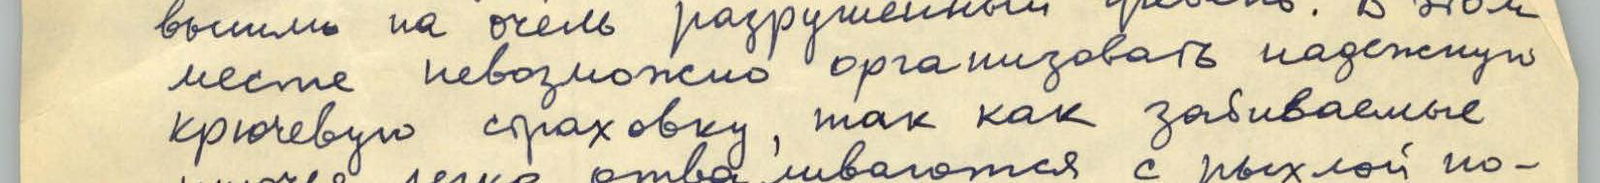 вышли на очень разрушенный гребень. В этом
месте невозможно организовать надежную
крючевую страховку, так как забиваемые
крючья легко отваливаются с рыхлой по-